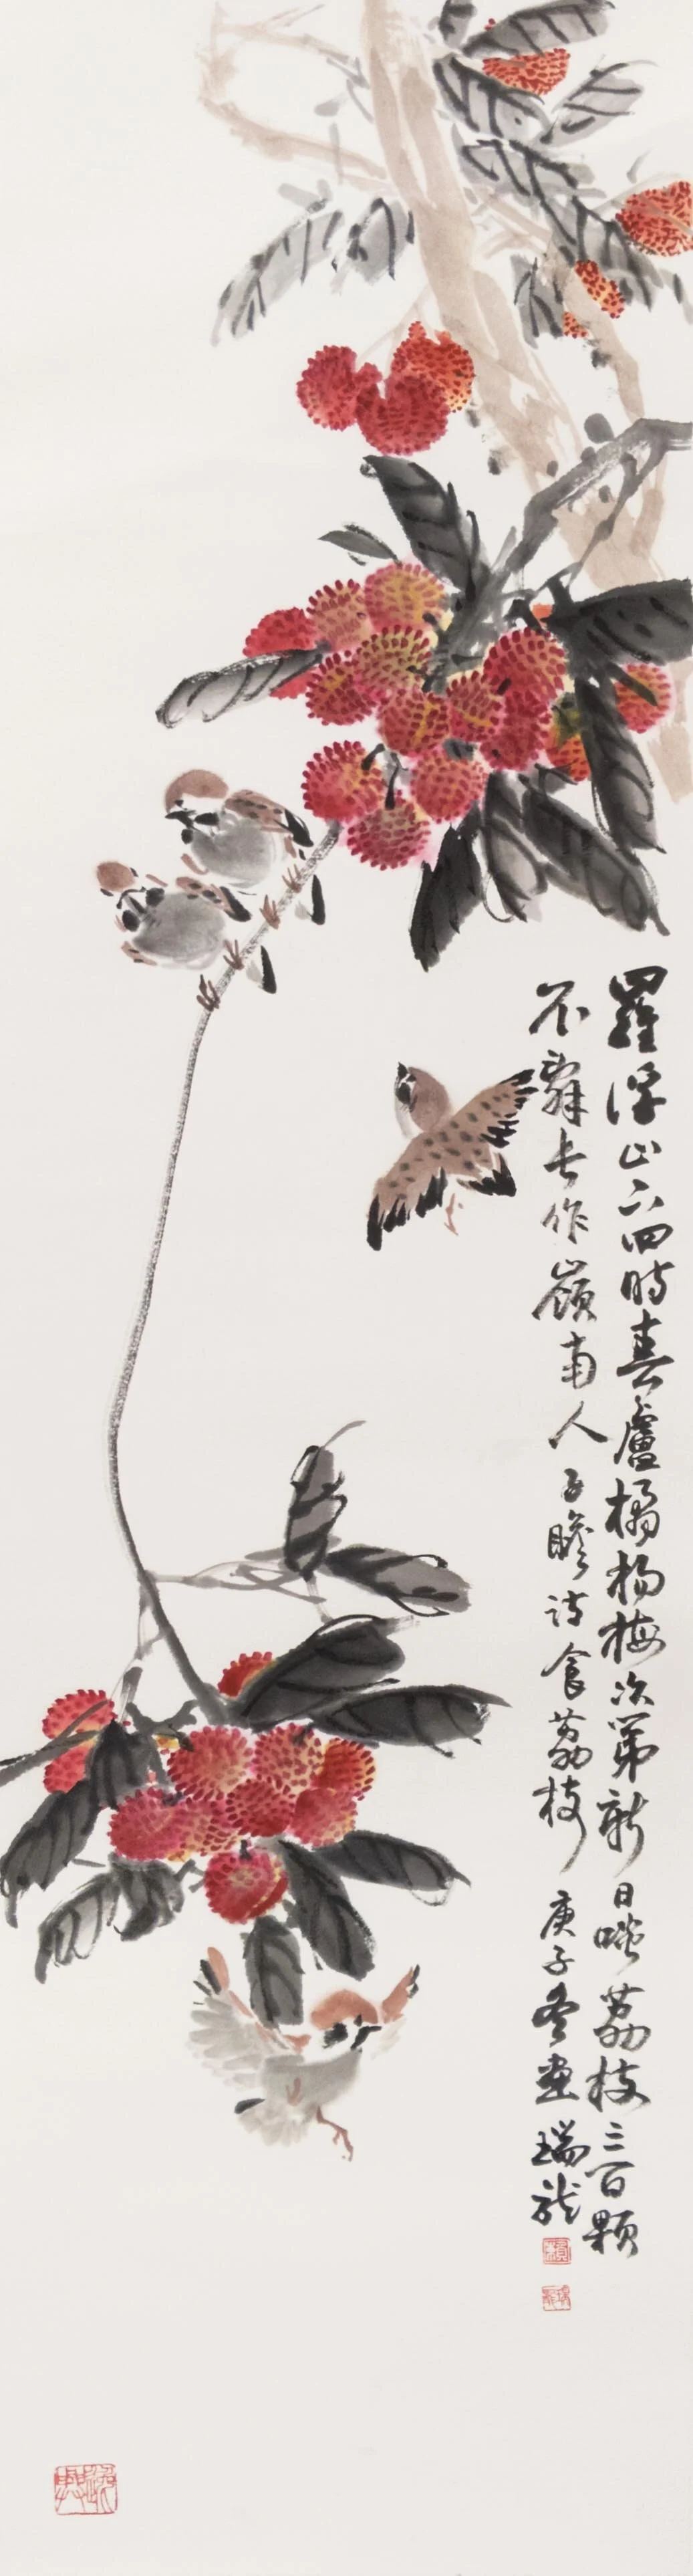 羅浮山下四時春盧橘楊梅次第新日啖荔枝三百顆
不辭長作嶺南人子瞻詩食荔枝庚子冬畫瑞龍